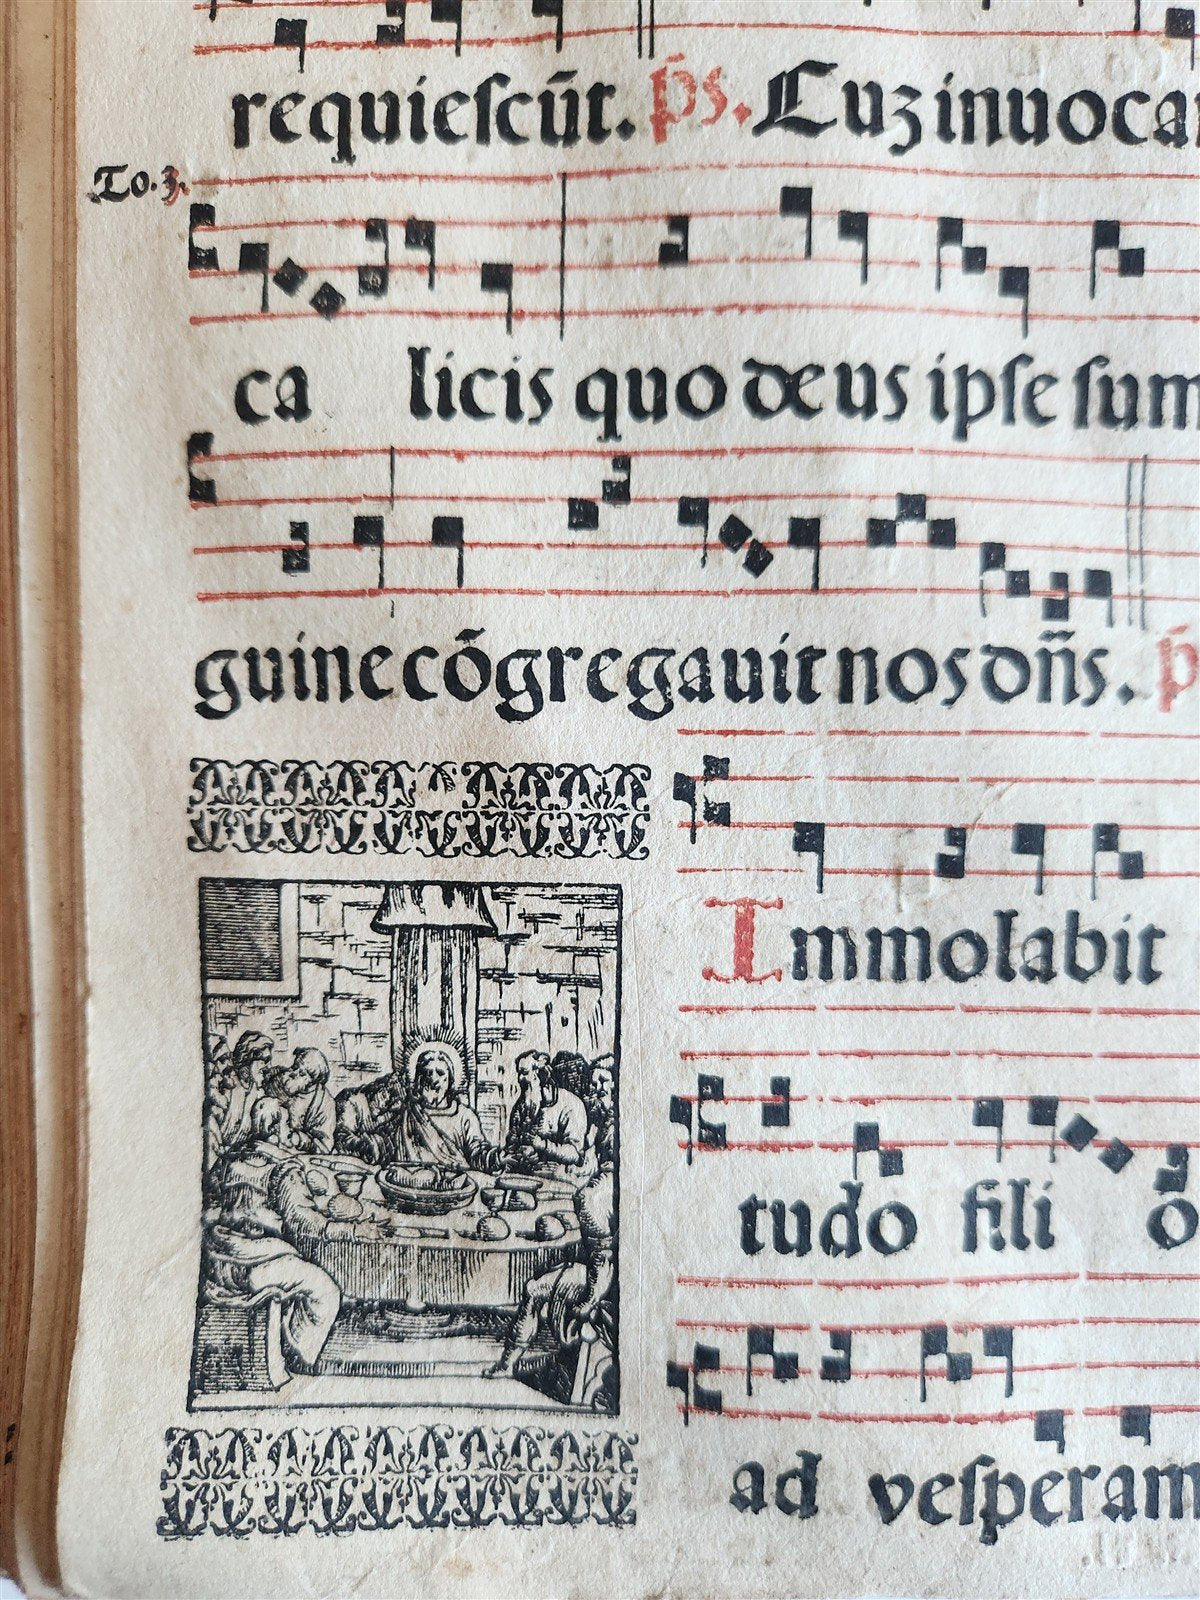 requiescūt. p̄s. Cuz inuoca
To. 3.
ca licis quo deus ipse sum
guine cōgregauit nos dn̄s. p̄
Immolabit
tudo fili o
ad vesperam